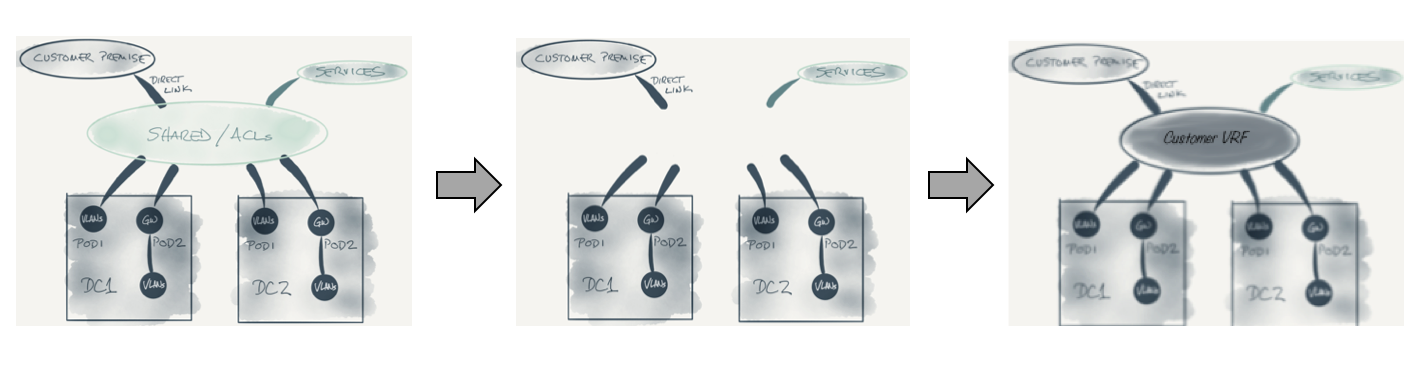 CUSTOMER PREMISE
DIRECT
LINK
SERVICES
SHARED/ACLs
VLANs
GW
POD1
POD2
DC1
VLANs
VLANs
GW
POD1
POD2
DC2
VLANs
CUSTOMER PREMISE
DIRECT
LINK
SERVICES
VLANs
GW
POD1
POD2
DC1
VLANs
VLANs
GW
POD1
POD2
DC2
VLANs
CUSTOMER PREMISE
DIRECT
LINK
SERVICES
Customer VRF
VLANs
GW
POD1
POD2
DC1
VLANs
VLANs
GW
POD1
POD2
DC2
VLANs